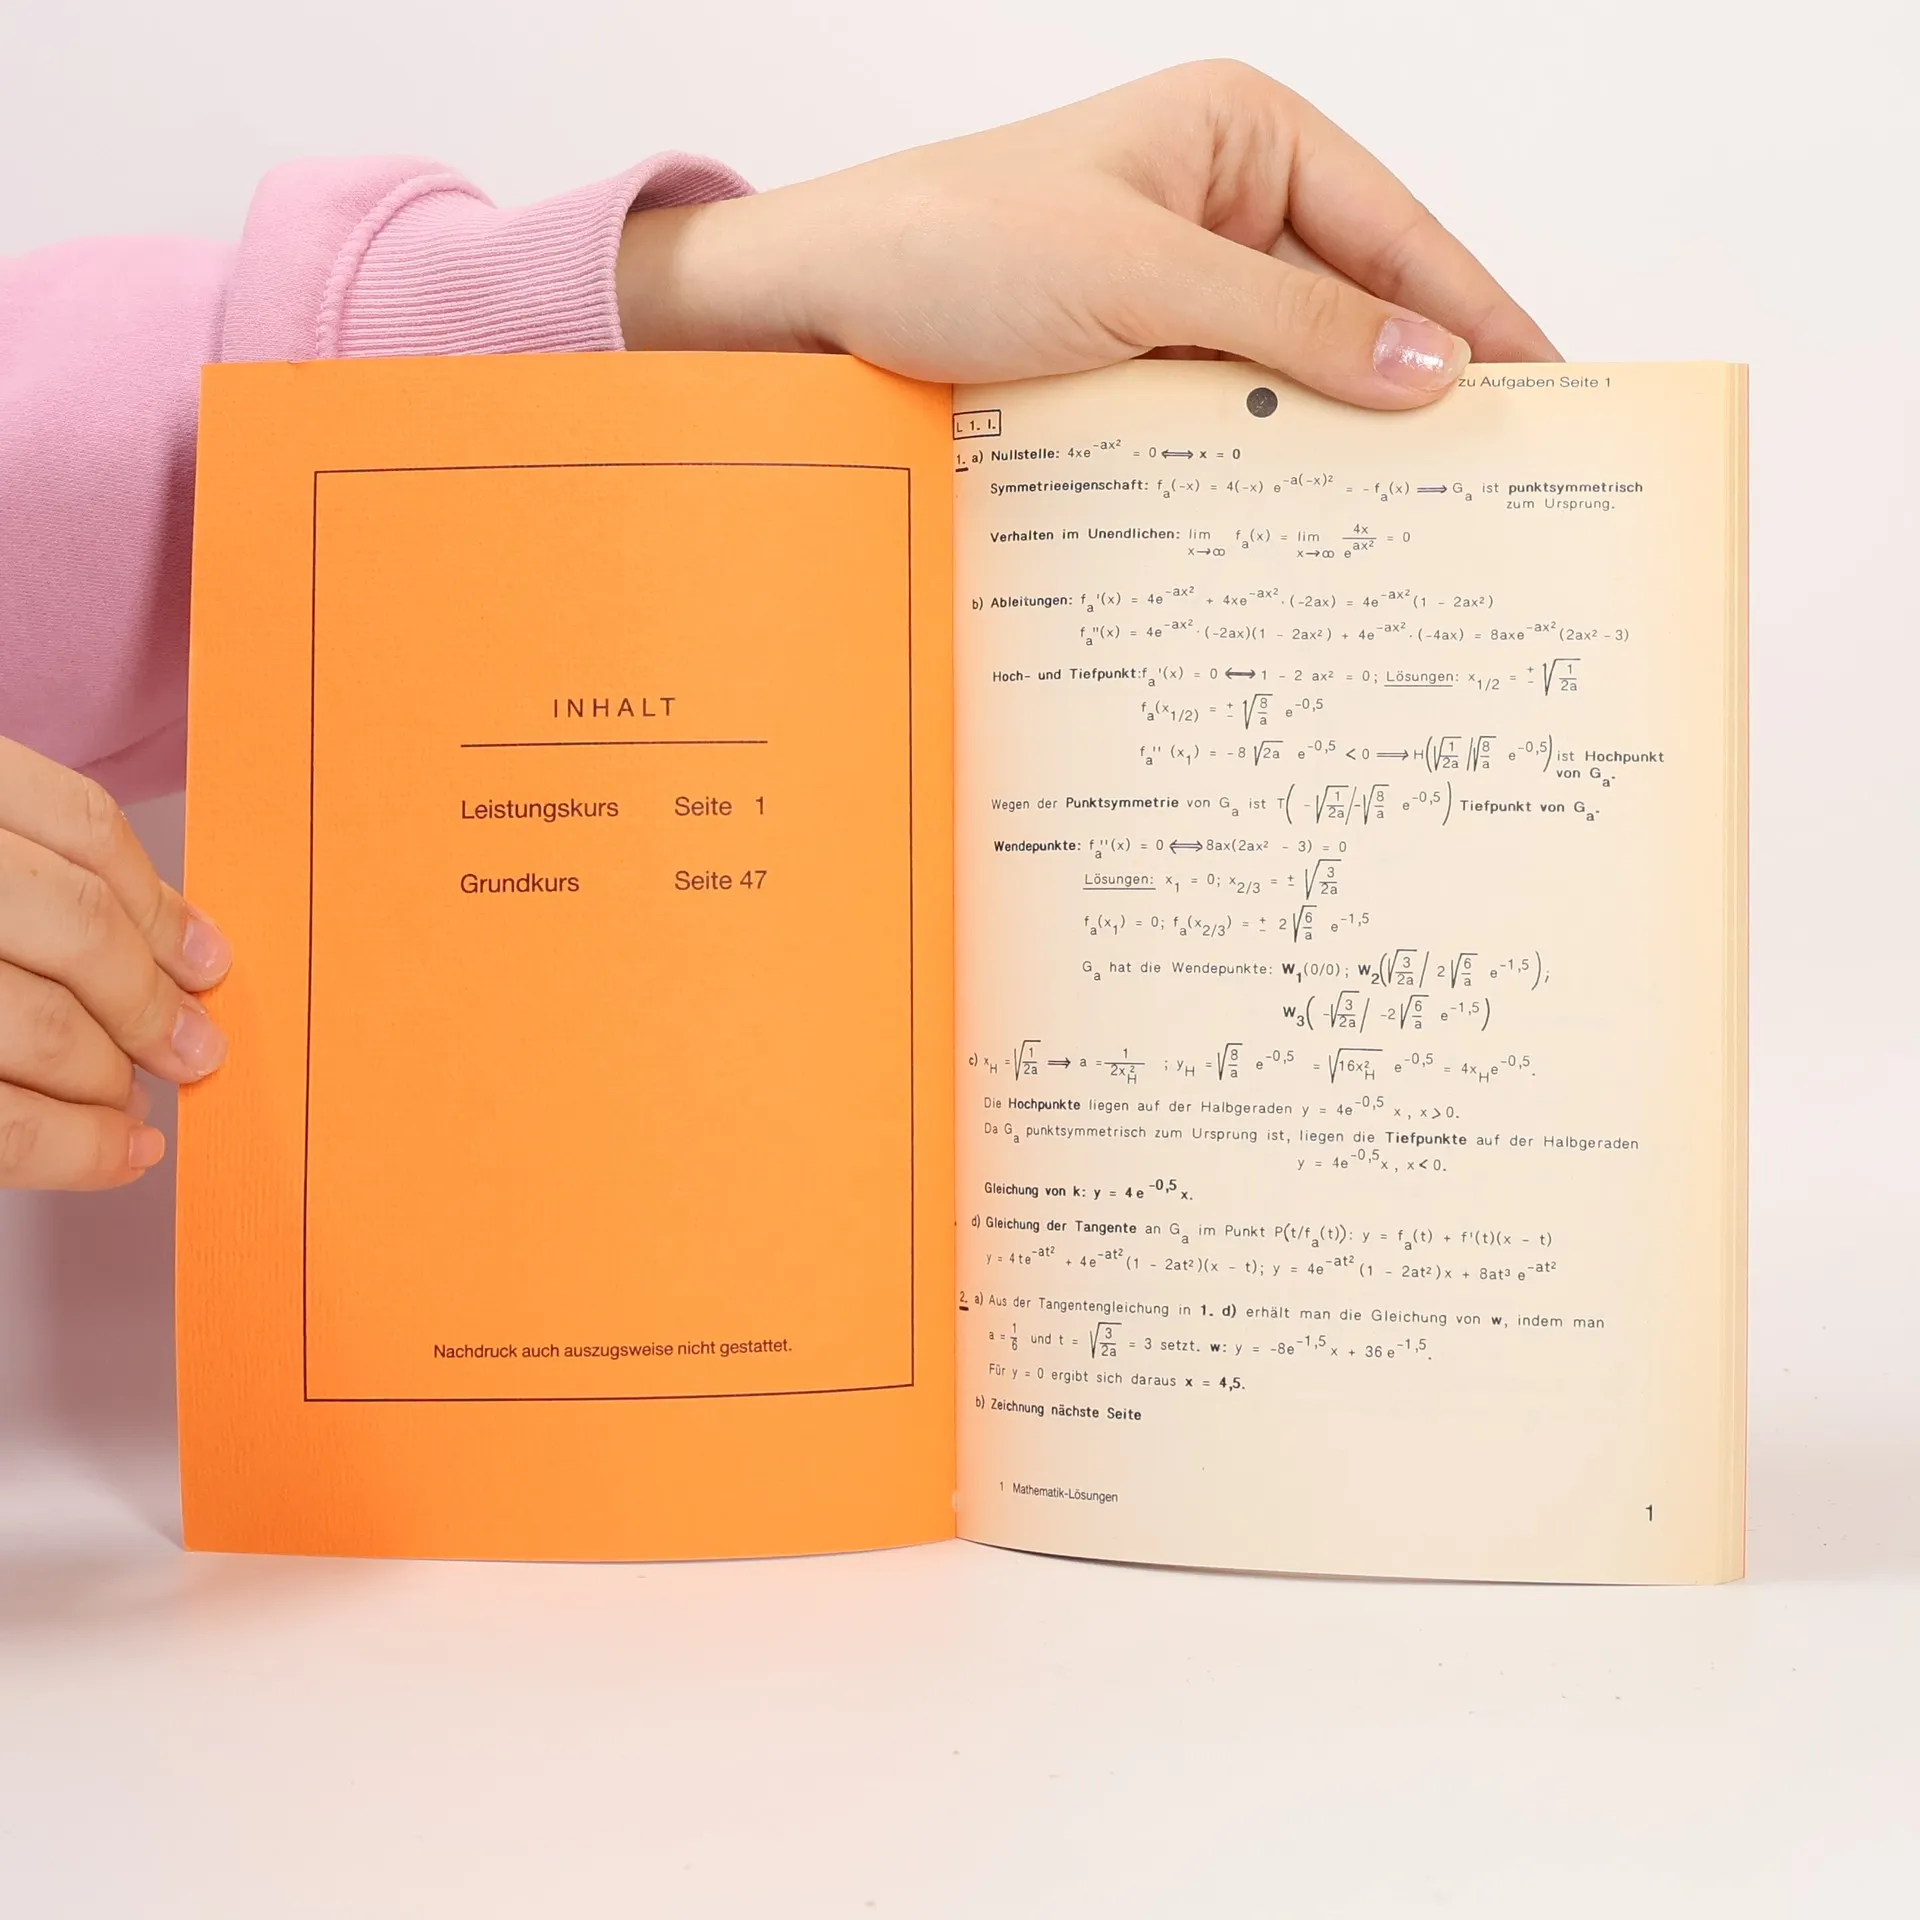 INHALT
Leistungskurs Seite 1
Grundkurs Seite 47
Nachdruck auch auszugsweise nicht gestattet.
zu Aufgaben Seite 1
L 1. I.
1. a) Nullstelle: 4xe^(-ax²) = 0 ⟺ x = 0
Symmetrieeigenschaft: f_a(-x) = 4(-x) e^(-a(-x)²) = -f_a(x) ⟹ G_a ist punktsymmetrisch
zum Ursprung.
Verhalten im Unendlichen: lim_(x→∞) f_a(x) = lim_(x→∞) 4x/e^(ax²) = 0
b) Ableitungen: f_a'(x) = 4e^(-ax²) + 4xe^(-ax²)·(-2ax) = 4e^(-ax²)(1 - 2ax²)
f_a''(x) = 4e^(-ax²)·(-2ax)(1 - 2ax²) + 4e^(-ax²)·(-4ax) = 8axe^(-ax²)(2ax² - 3)
Hoch- und Tiefpunkt: f_a'(x) = 0 ⟺ 1 - 2 ax² = 0; Lösungen: x_1/2 = ± √(1/2a)
f_a(x_1/2) = ± √(8/a) e^(-0,5)
f_a''(x_1) = -8 √(2a) e^(-0,5) < 0 ⟹ H(√(1/2a) / √(8/a) e^(-0,5)) ist Hochpunkt
von G_a.
Wegen der Punktsymmetrie von G_a ist T(-√(1/2a) / -√(8/a) e^(-0,5)) Tiefpunkt von G_a.
Wendepunkte: f_a''(x) = 0 ⟺ 8ax(2ax² - 3) = 0
Lösungen: x_1 = 0; x_2/3 = ± √(3/2a)
f_a(x_1) = 0; f_a(x_2/3) = ± 2√(6/a) e^(-1,5)
G_a hat die Wendepunkte: W_1(0/0); W_2(√(3/2a) / 2√(6/a) e^(-1,5));
W_3(-√(3/2a) / -2√(6/a) e^(-1,5))
c) x_H = √(1/2a) ⟹ a = 1/(2x_H²) ; y_H = √(8/a) e^(-0,5) = √(16x_H²) e^(-0,5) = 4x_H e^(-0,5).
Die Hochpunkte liegen auf der Halbgeraden y = 4e^(-0,5) x, x > 0.
Da G_a punktsymmetrisch zum Ursprung ist, liegen die Tiefpunkte auf der Halbgeraden
y = 4e^(-0,5) x, x < 0.
Gleichung von k: y = 4e^(-0,5) x.
d) Gleichung der Tangente an G_a im Punkt P(t/f_a(t)): y = f_a(t) + f'(t)(x - t)
y = 4te^(-at²) + 4e^(-at²)(1 - 2at²)(x - t); y = 4e^(-at²)(1 - 2at²)x + 8at³ e^(-at²)
2. a) Aus der Tangentengleichung in 1. d) erhält man die Gleichung von w, indem man
a = 1/6 und t = √(3/2a) = 3 setzt. w: y = -8e^(-1,5) x + 36 e^(-1,5).
Für y = 0 ergibt sich daraus x = 4,5.
b) Zeichnung nächste Seite
1 Mathematik-Lösungen
1